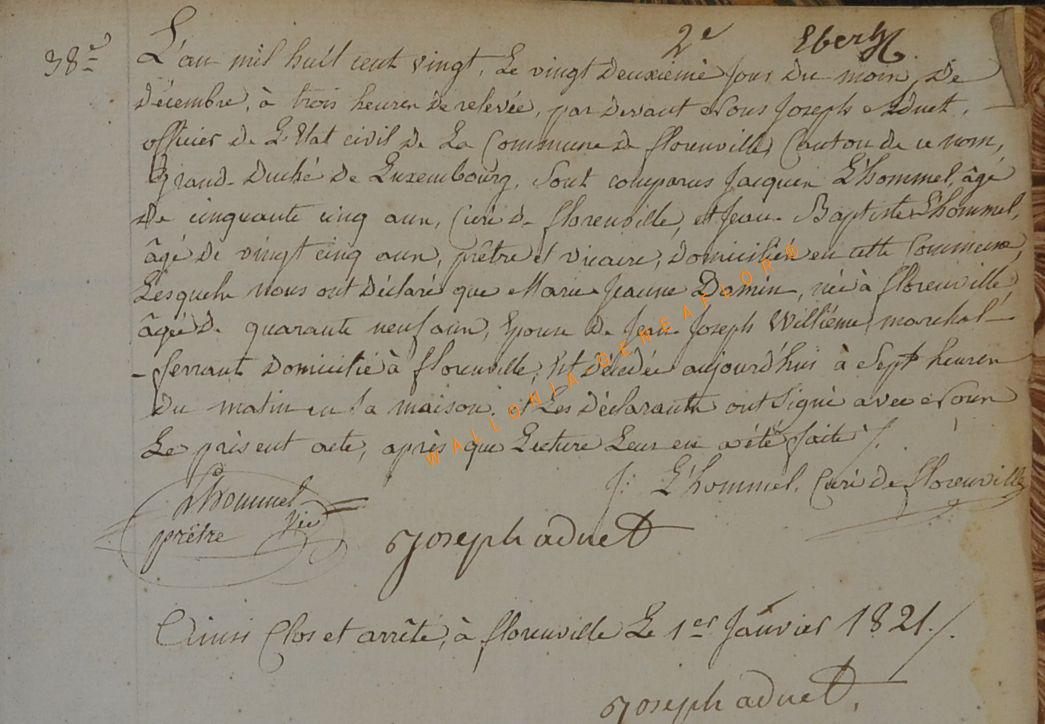 2e Eberh
38e L'an mil huit cent vingt, Le vingt deuxieme jour du mois De
Décembre, à trois heures de relevée, par devant Nous Joseph Adnet,
officier de L'Etat civil de La Commune de florenville, Canton de ce nom,
Grand-Duché de Luxembourg, Sont comparus Jacques L'hommel, âgé
De cinquante cinq ans, Curé de florenville, et Jean-Baptiste L'hommel,
âgé de vingt cinq ans, prêtre et vicaire, domiciliés en cette Commune,
Lesquels Nous ont Déclaré que Marie Jeanne Damin, née à florenville,
âgée de quarante neuf ans, Epouse de Jean-Joseph Willième, marchal-
-ferrant Domicilié à florenville, Est Décédée aujourd'hui à Sept heures
Du matin en Sa maison. et Les Déclarants ont Signé avec Nous
Le présent acte, après que Lecture Leur en a été faite ./.
J: L'hommel, Curé de florenville
Lhommel
prêtre Vic
Joseph adnet
Ainsi Clos et arrêté, à florenville Le 1er Janvier 1821./.
Joseph adnet.
WALLONIA GENEAFLORE